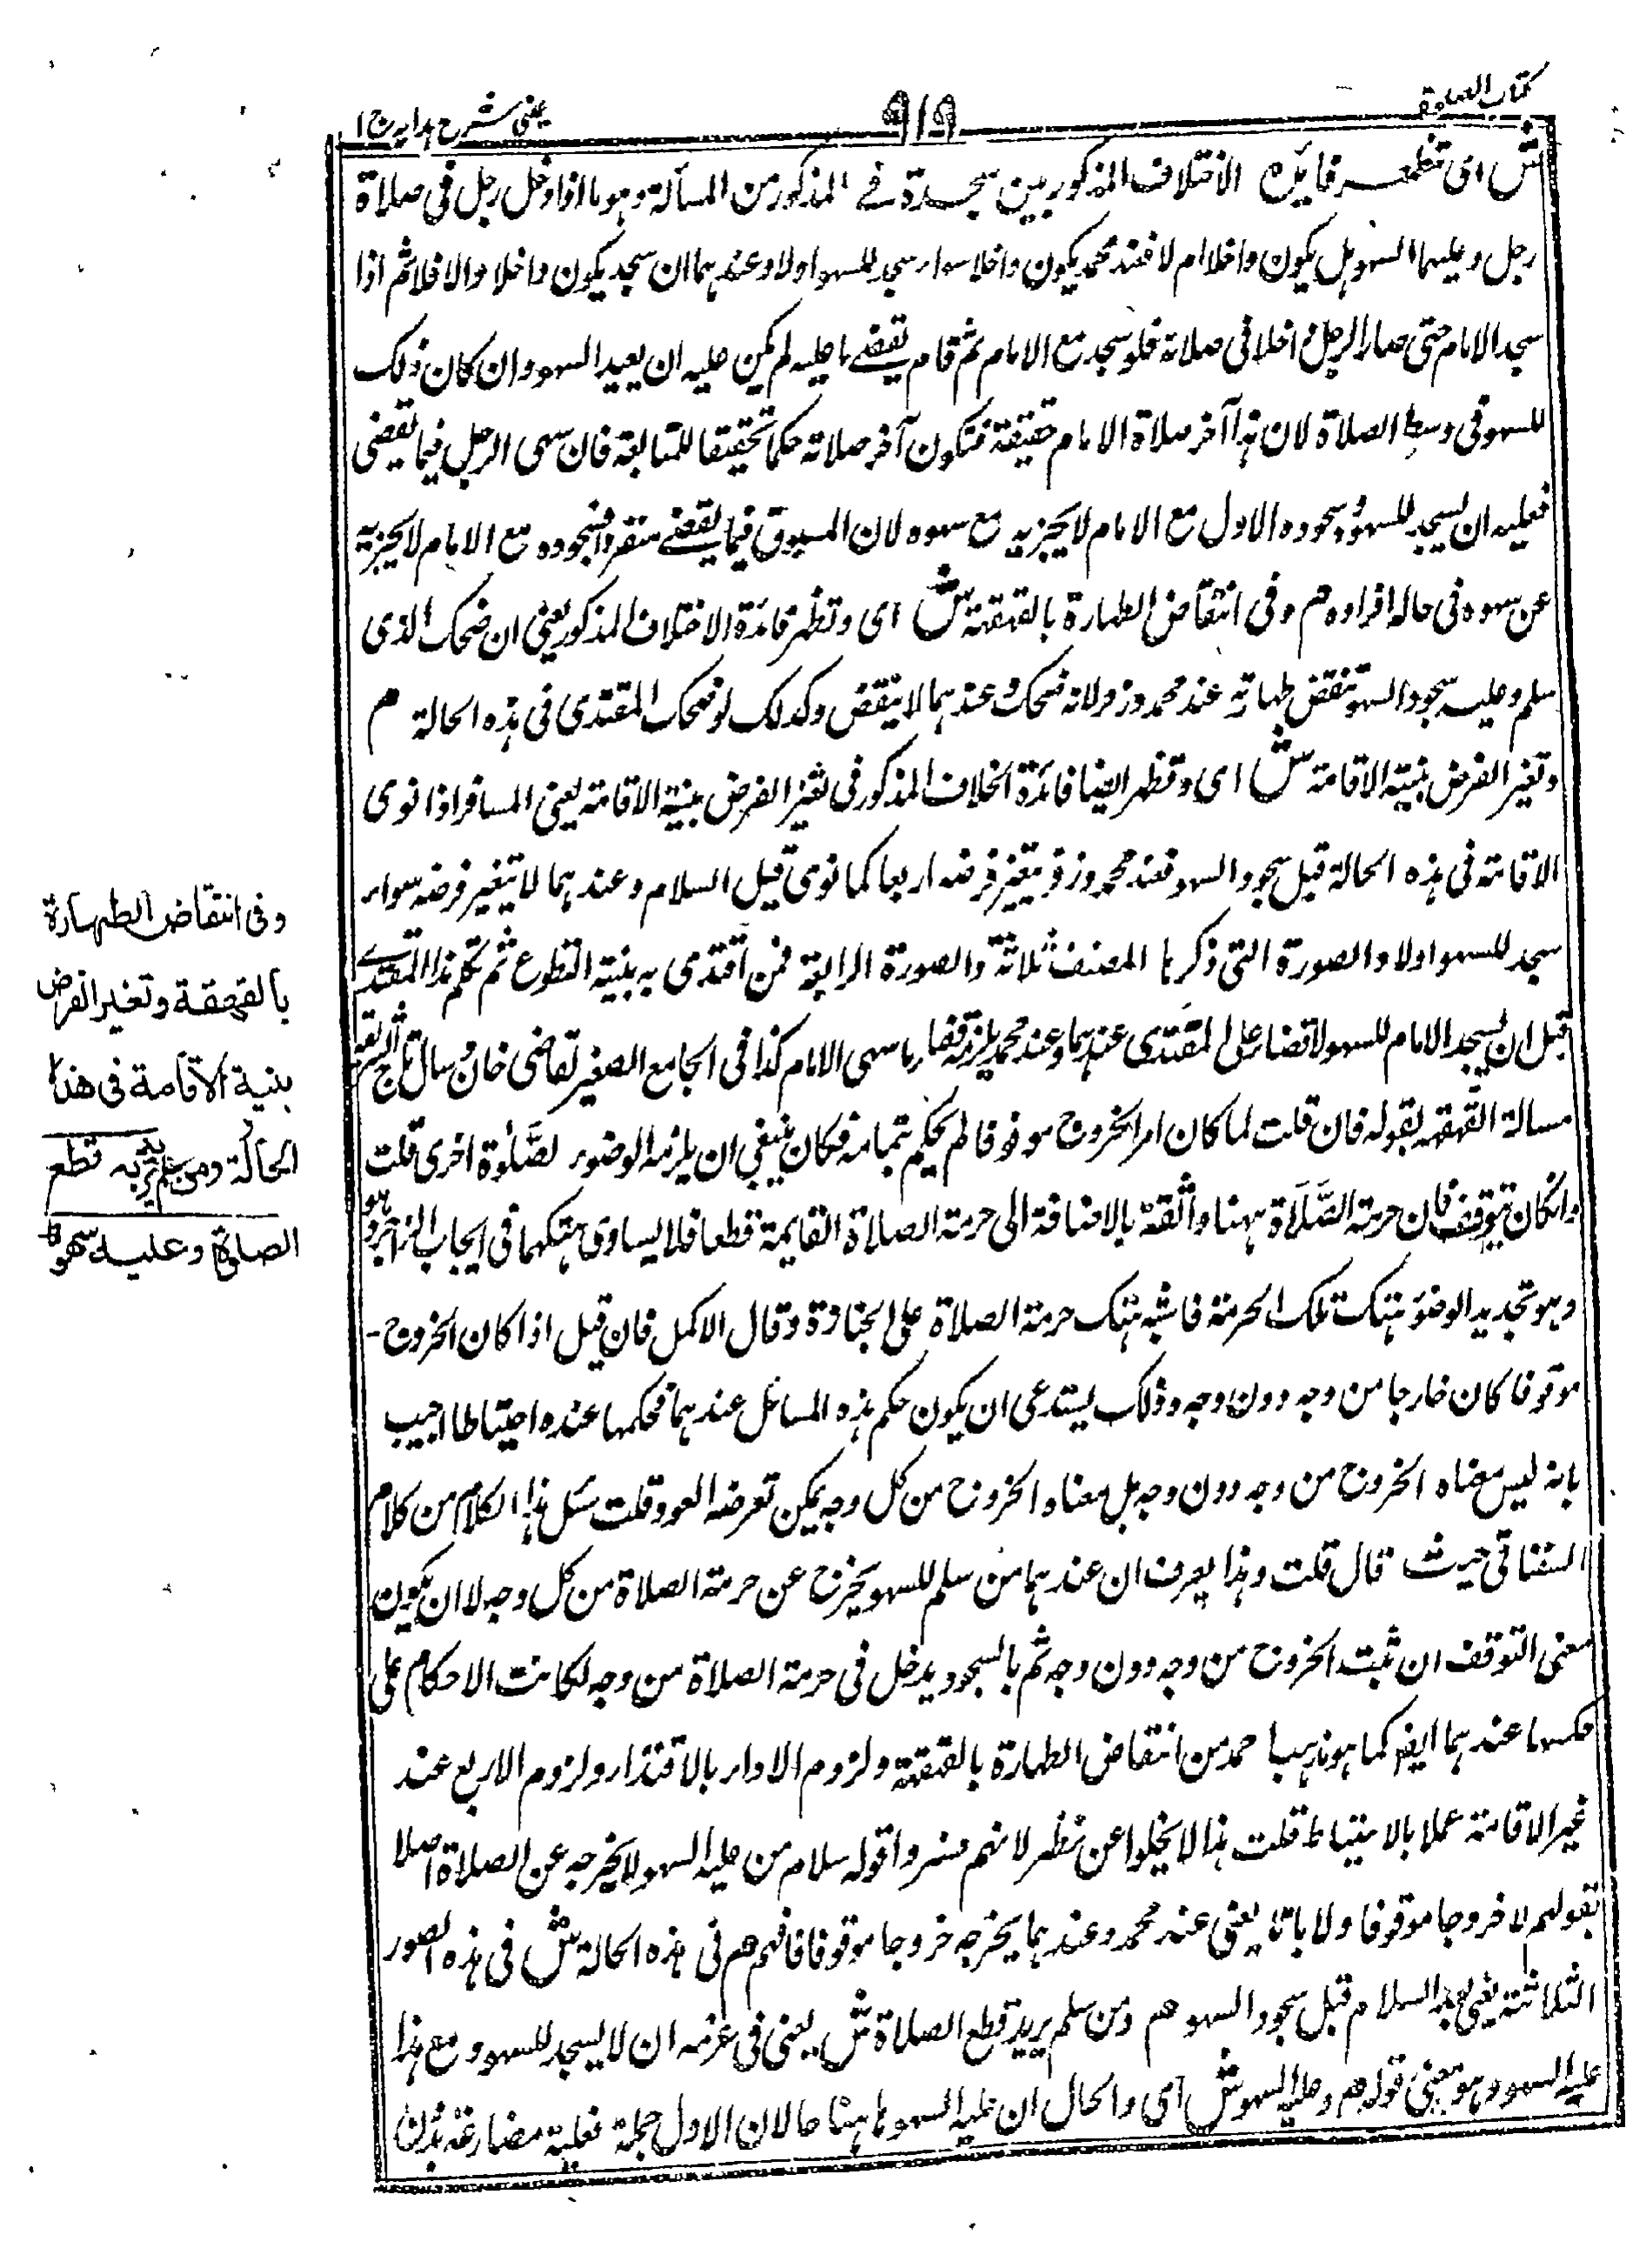 كتاب الصلوة
٩١٩
عينى شرح هدايه ج ١
ش اى تظهر فائدة الاختلاف المذكور بين سجدة فى المذكور من المسألة وهو ما اذا دخل رجل فى صلاة
رجل وعليهما السهو هل يكون داخلا ام لا فعند محمد يكون داخلا سواء سجد للسهو اولا وعندهما ان سجد يكون داخلا والا فلا ثم اذا
سجد الامام حتى صار الرجل داخلا فى صلاته فلو سجد مع الامام ثم قام يقضى ما عليه لم يكن عليه ان يعيد السهو وان كان ذلك
للسهو فى وسط الصلاة لان هذا آخر صلاة الامام حقيقة فتكون آخر صلاته حكما تحقيقا للمتابعة فان سهى الرجل فيما يقضى
فعليه ان يسجد للسهو وسجوده الاول مع الامام لا يجزيه مع سهوه لان المسبوق فيما يقضى منفرد فسجوده مع الامام لا يجزيه
عن سهوه فى حاله افراده م وفى انتقاض الطهارة بالقهقهة ش اى وتظهر فائدة الاختلاف المذكور يعنى ان ضحك الذى
سلم وعليه سجود السهو تنقض طهارته عند محمد وزفر لانه ضحك وعندهما لا ينقض وكذلك لو ضحك المقتدى فى هذه الحالة م
وتغير الفرض بنية الاقامة ش اى وتظهر ايضا فائدة الخلاف المذكور فى تغير الفرض بنية الاقامة يعنى المسافر اذا نوى
الاقامة فى هذه الحالة قبل سجود السهو فعند محمد وزفر يتغير فرضه اربعا كما نوى قبل السلام وعندهما لا يتغير فرضه سواء
سجد للسهو اولا والصورة التى ذكرها المصنف ثلاثة والصورة الرابعة فمن اقتدى به بنية التطوع ثم تكلم هذا المقتدى
قبل ان يسجد الامام للسهو لا قضاء على المقتدى عندهما وعند محمد يلزمه قضاء ما سهى الامام كذا فى الجامع الصغير لقاضى خان وسأل تاج الشريعة
مسالة القهقهه بقوله فان قلت لما كان امر الخروج موقوفا لم يحكم بتمامه فكان ينبغى ان يلزمه الوضوء لصلوة اخرى قلت
وان كان يتوقف فان حرمة الصلاة ههنا واثقة بالاضافة الى حرمة الصلاة القايمة قطعا فلا يساوى هتكهما فى ايجاب الزاجر وهو
وهو تجديد الوضوء هتك تلك الحرمة فاشبه هتك حرمة الصلاة على الجنازة وقال الاكمل فان قيل اذا كان الخروج -
موقوفا كان خارجا من وجه دون وجه وذلك يستدعى ان يكون حكم هذه المسائل عندهما كحكمها عنده احتياطا اجيب
بانه ليس معناه الخروج من وجه دون وجه بل معناه الخروج من كل وجه يمكن تعرضه العود قلت سئل هذا الكلام من كلام
السغناقى حيث قال قلت وبهذا يعرف ان عندهما من سلم للسهو يخرج عن حرمة الصلاة من كل وجه لا ان يكون
معنى التوقف ان ثبت الخروج من وجه دون وجه ثم بالسجود يدخل فى حرمة الصلاة من وجه لكانت الاحكام على
عكسها عندهما ايضا كما هو مذهب احمد من انتقاض الطهارة بالقهقهة ولزوم الاداء بالاقتداء ولزوم الاربع عند
غير الاقامة عملا بالاحتياط قلت هذا لا يخلوا عن نظر لانهم فسروا قوله سلام من عليه السهو لا يخرجه عن الصلاة اصلا
بقولهم لا خروجا موقوفا ولا باتا يعنى عند محمد وعندهما يخرجه خروجا موقوفا فافهم م فى هذه الحالة ش فى هذه الصور
الثلاثة يعنى بعد السلام قبل سجود السهو م ومن سلم يريد قطع الصلاة ش يعنى فى عزمه ان لا يسجد للسهو ومع هذا
عليه السهو وهو معنى قوله م وعليه السهو ش اى والحال ان عليه السهو ههنا حالان الاول جملة فعلية مضارعة بدون
وفى انتقاض الطهارة
بالقهقهة وتغير الفرض
بنية الاقامة فى هذا
الحالة ومن سلم يريد به قطع
الصلوة وعليه سهو